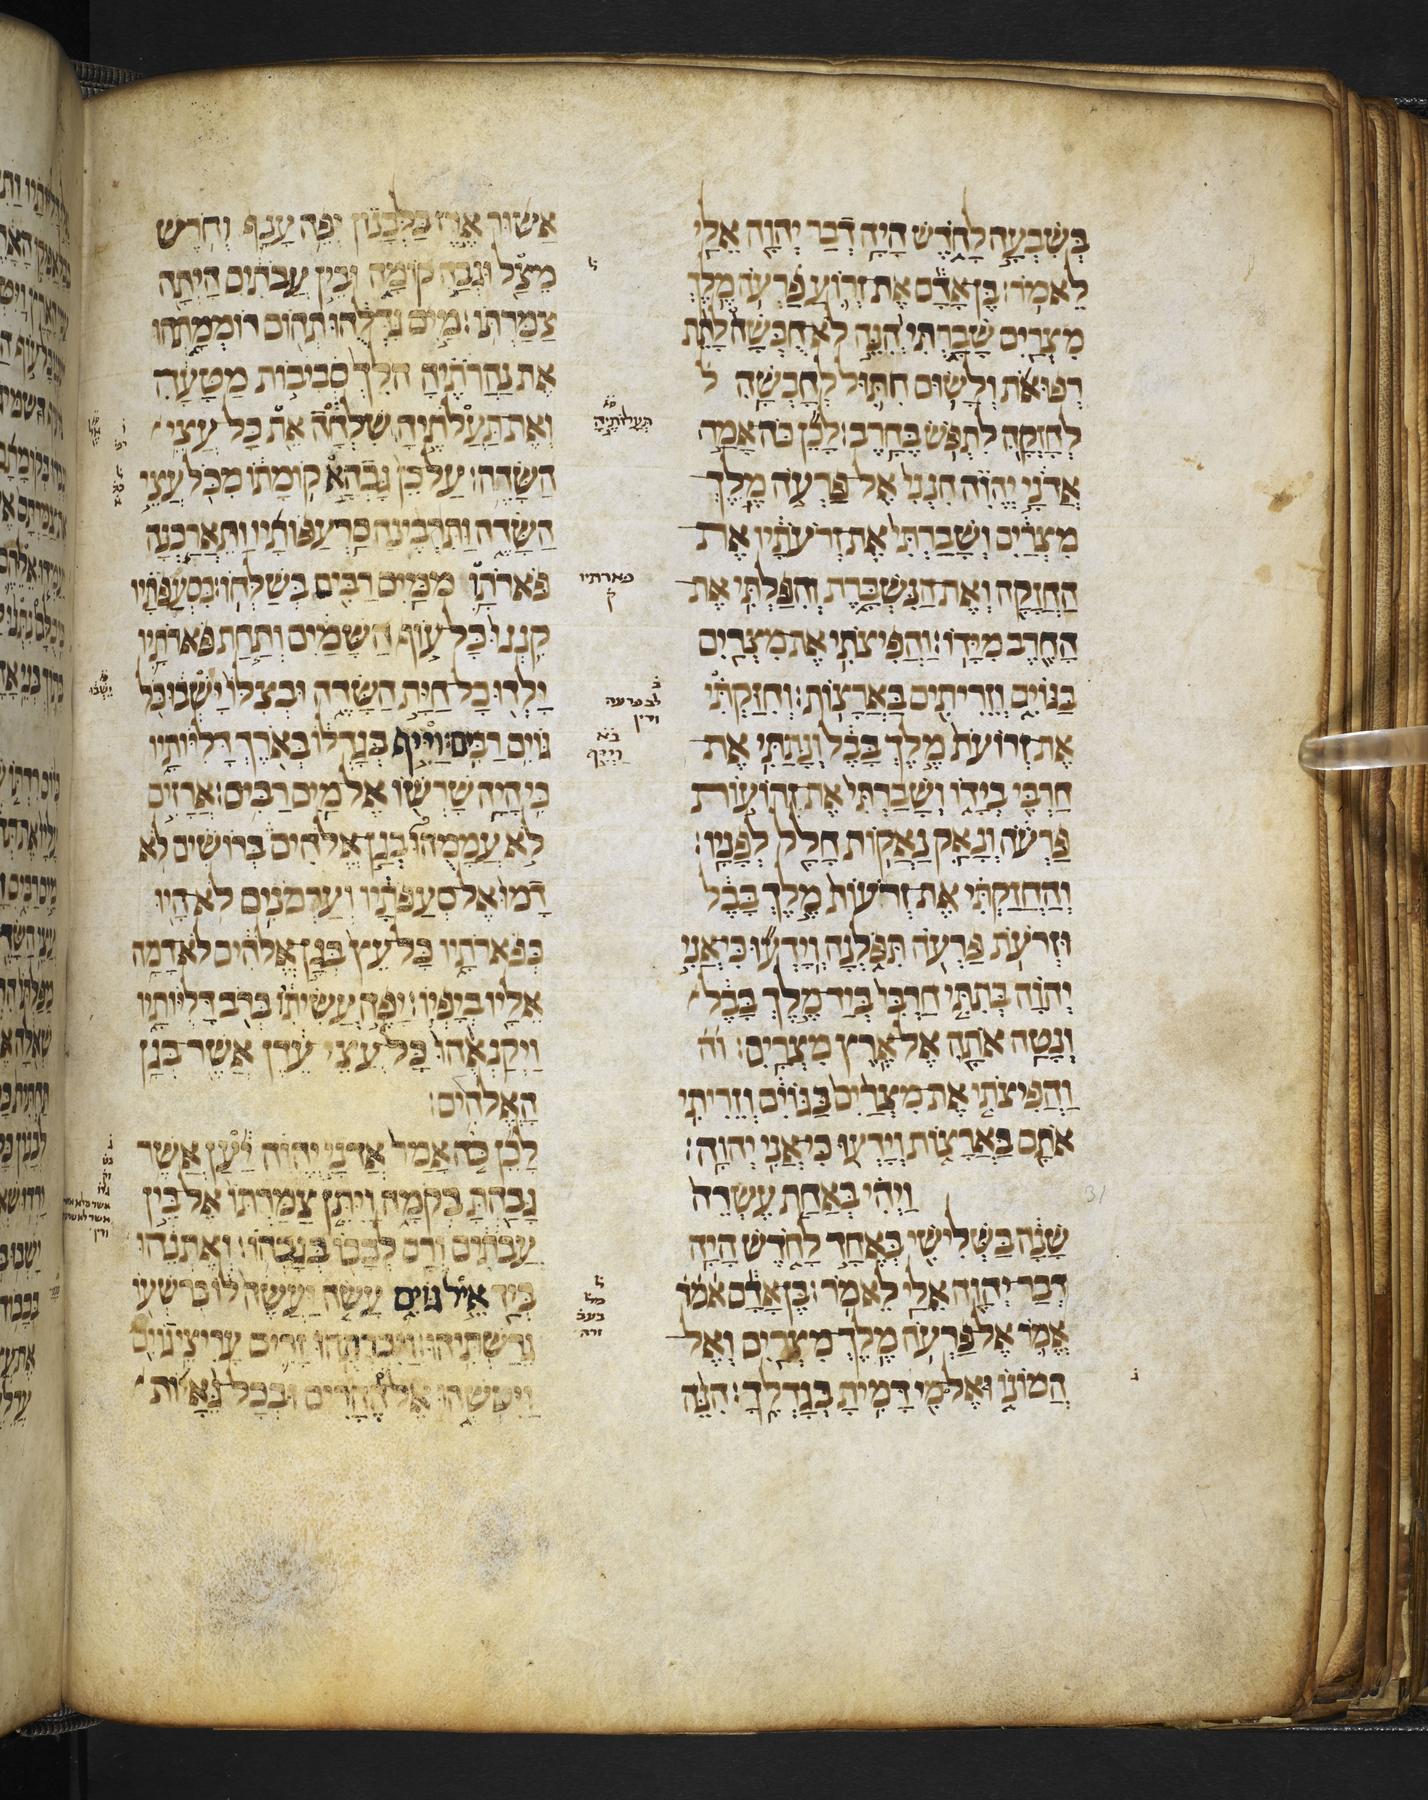 בשבעה לחדש היה דבר יהוה אלי
לאמר׃ בן אדם את זרוע פרעה מלך
מצרים שברתי והנה לא חבשה לתת
רפואות לשום חתול לחבשה ל
לחזקה לתפש בחרב׃ לכן כה אמר
אדני יהוה הנני אל פרעה מלך
מצרים ושברתי את זרעתיו את
החזקה ואת הנשברת והפלתי את
החרב מידו׃ והפיצותי את מצרים
בגוים וזריתים בארצות׃ וחזקתי
את זרועות מלך בבל ונתתי את
חרבי בידו ושברתי את זרועות
פרעה ונאק נאקות חלל לפניו׃
והחזקתי את זרעות מלך בבל
וזרעת פרעה תפלנה וידעו כי אני
יהוה בתתי חרבי ביד מלך בבל
ונטה אתה אל ארץ מצרים׃ וה
והפיצותי את מצרים בגוים וזריתי
אתם בארצות וידעו כי אני יהוה׃
ויהי באחת עשרה
שנה בשלישי באחד לחדש היה
דבר יהוה אלי לאמר׃ בן אדם אמר
אמר אל פרעה מלך מצרים ואל
המונו ואל מי דמית בגדלך׃ הנה
תעלותיה
פארתיו
ק
לב פרעה
ודין
וייף
31
אשור ארז בלבנון יפה ענף וחרש
מצל וגבה קומה ובין עבתים היתה
צמרתו׃ מים גדלוהו תהום רוממתהו
את נהרתיה הלך סביבות מטעה
ואת תעלתיה שלחה את כל עצי
השדה׃ על כן גבהא קומתו מכל עצי
השדה ותרבינה סרעפותיו ותארכנה
פארתו ממים רבים בשלחו׃ בסעפתיו
קננו כל עוף השמים ותחת פארתיו
ילדו כל חית השדה ובצלו ישבו כל
גוים רבים׃ וייף בגדלו בארך דליותיו
כי היה שרשו אל מים רבים׃ ארזים
לא עממהו בגן אלהים ברושים לא
דמו אל סעפתיו וערמנים לא היו
כפארתיו כל עץ בגן אלהים לא דמה
אליו ביפיו׃ יפה עשיתיו ברב דליותיו
ויקנאהו כל עצי עדן אשר בגן
האלהים׃
לכן כה אמר אדני יהוה יען אשר
גבהת בקומה ויתן צמרתו אל בין
עבתים ורם לבבו בגבהו׃ ואתנהו
ביד איל גוים עשה יעשה לו כרשעו
גרשתיהו׃ ויכרתהו זרים עריצי גוים
ויטשהו אל ההרים ובכל גאיות